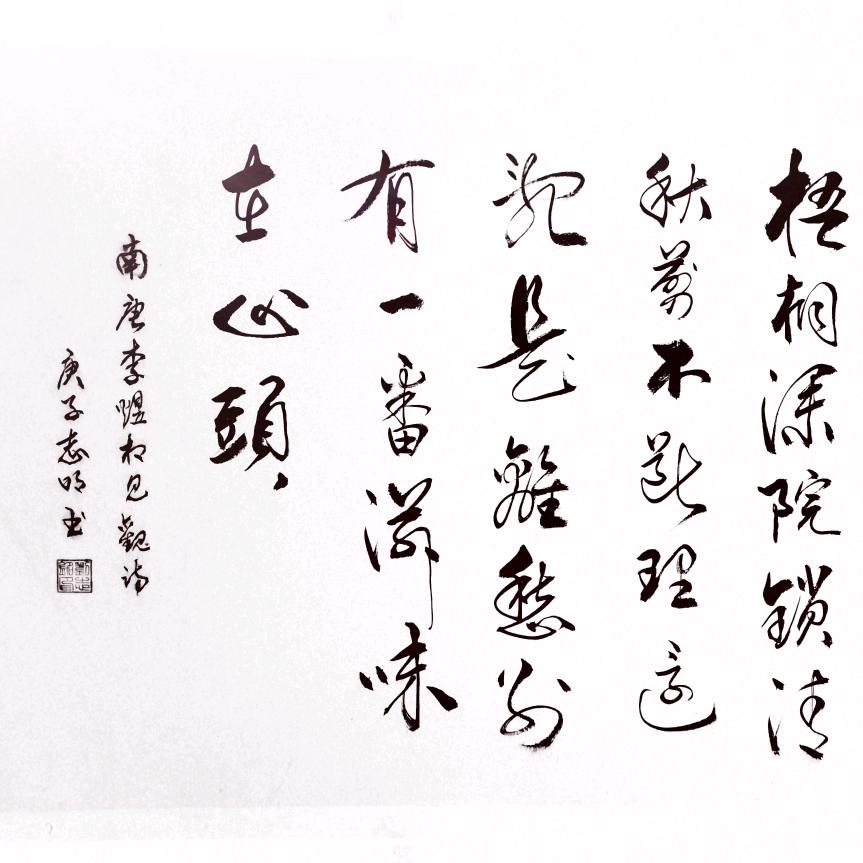 梧桐深院鎖清
秋剪不斷理還
亂是離愁別
有一番滋味
在心頭
南唐李煜相見觀詩
庚子志明书